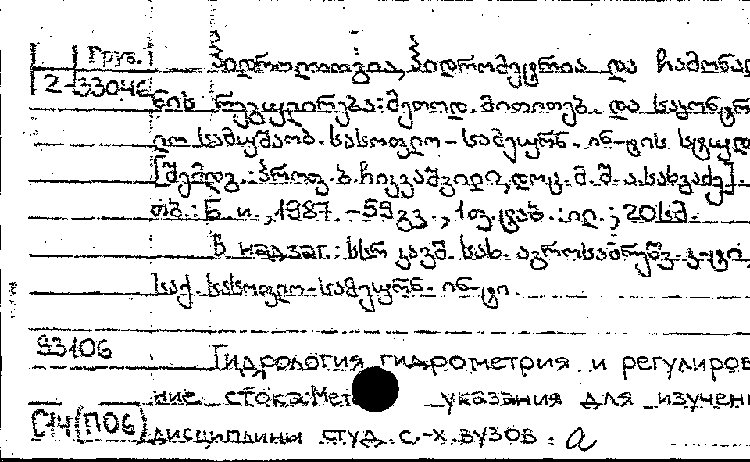 Груз.
2-33046
ჰიდროლოგია, ჰიდრომეტრია და ჩამონად
ნის რეგულირება: მეთოდ. მითითებ. და საკონტრ
ლო სამუშაოებ. სასოფლო-სამეურნ. ინ-ტის სტუდ
[შემდგ.: პროფ. ბ. ჩიკვაშვილი, დოც. მ. შ. ა. სახვაძე].
თბ.: Б. и., 1987. - 59 გვ., 1 ფ. ტაბ.: ილ.; 20 სმ.
В надзаг.: სსრ კავშ. სახ. აგროსამრეწვ. კ-ტი,
საქ. სასოფლო-სამეურნ. ინ-ტი.
93106
Гидрология, гидрометрия и регулиров
ние стока: Мет указания для изучен
С14(П06) дисциплины студ. с.-х. вузов. а